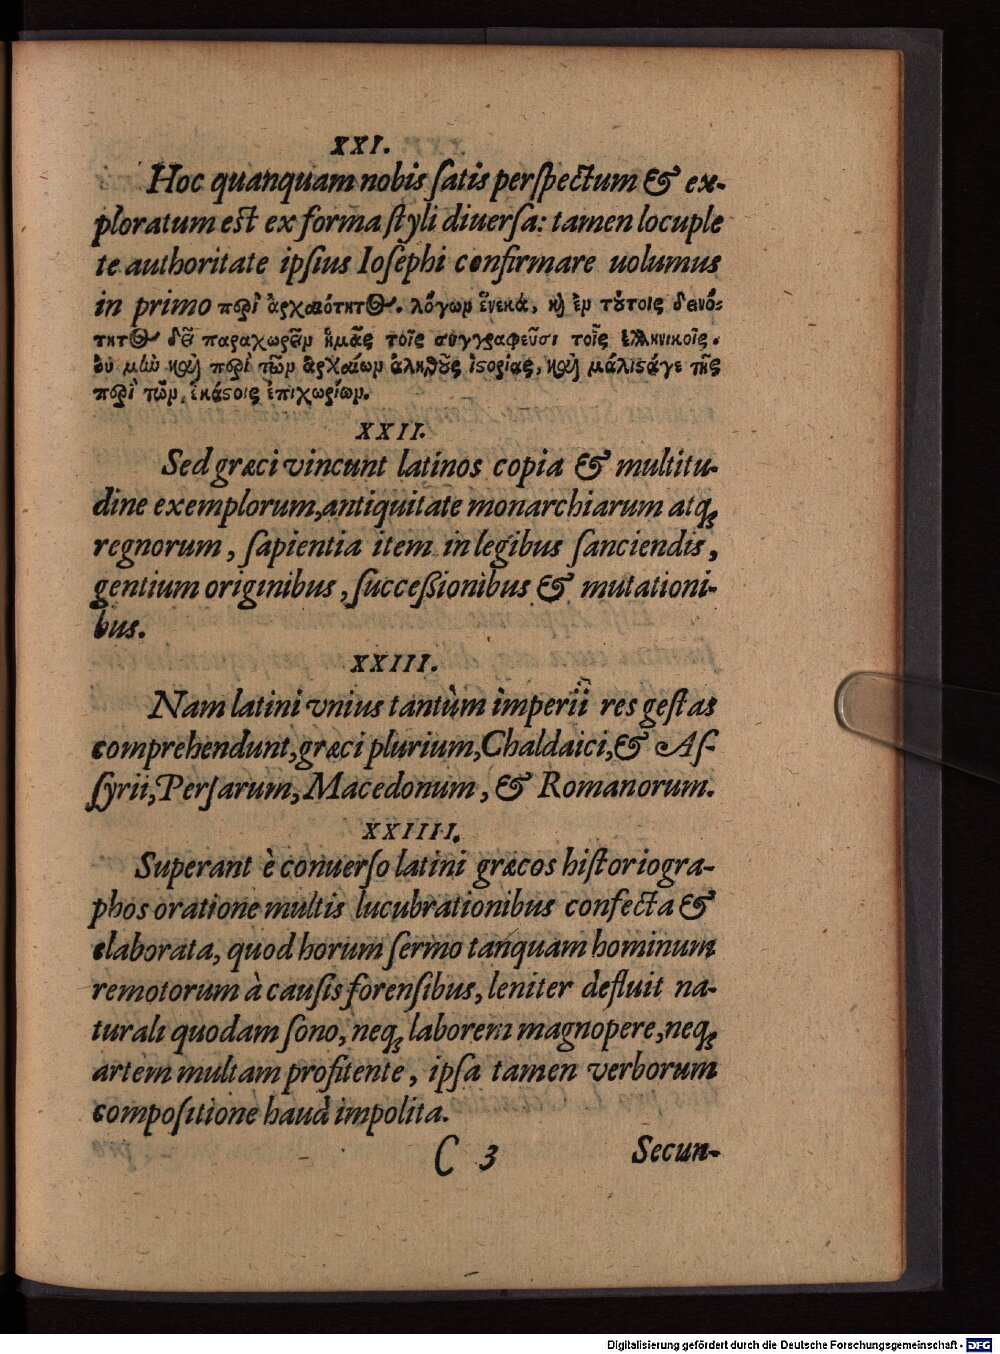 XXI.
Hoc quanquam nobis ſatis perſpectum & ex-
ploratum est ex forma ſtyli diuerſa: tamen locuple
te authoritate ipſius Ioſephi confirmare uolumus
in primo περὶ ἀρχαιότητος. λόγων ἕνεκά, καὶ ἐν τούτοις δεινό-
τητος δεῖ παραχωρεῖν ἡμᾶς τοῖς συγγραφεῦσι τοῖς ἑλληνικοῖς.
οὐ μὴν καὶ περὶ τῶν ἀρχαίων ἀληθοῦς ἱϛορίας, καὶ μάλιϛάγε τῆς
περὶ τῶν, ἑκάϛοις ἐπιχωρίων.
XXII.
Sed græci vincunt latinos copia & multitu-
dine exemplorum, antiquitate monarchiarum atq;
regnorum, ſapientia item in legibus ſanciendis,
gentium originibus, ſucceßionibus & mutationi-
bus.
XXIII.
Nam latini vnius tantùm imperii res geſtas
comprehendunt, græci plurium, Chaldaici, & Aſ-
ſyrii, Perſarum, Macedonum, & Romanorum.
XXIIII.
Superant è conuerſo latini græcos hiſtoriogra-
phos oratione multis lucubrationibus confecta &
elaborata, quod horum ſermo tanquam hominum
remotorum à cauſis forenſibus, leniter defluit na-
turali quodam ſono, neq; laborem magnopere, neq;
artem multam profitente, ipſa tamen verborum
compoſitione haud impolita.
C 3 Secun-
Digitalisierung gefördert durch die Deutsche Forschungsgemeinschaft - DFG